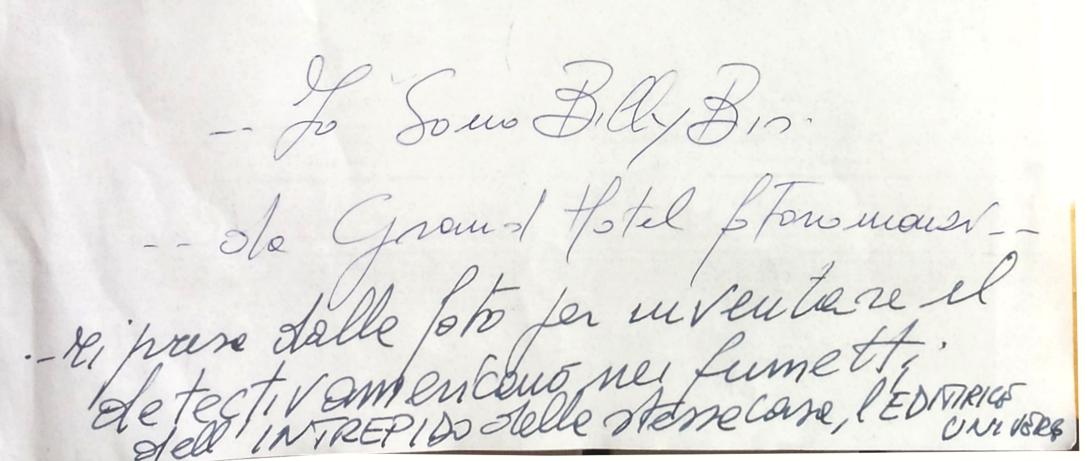 -- Io Sono Billy Bis.
-- da Grand Hotel foToromanzi --
.- ri prese dalle foto per inventare il
detectiv americano nei fumetti,
dell'INTREPIDO della stessa casa, l'EDITRICE
UNIVERS